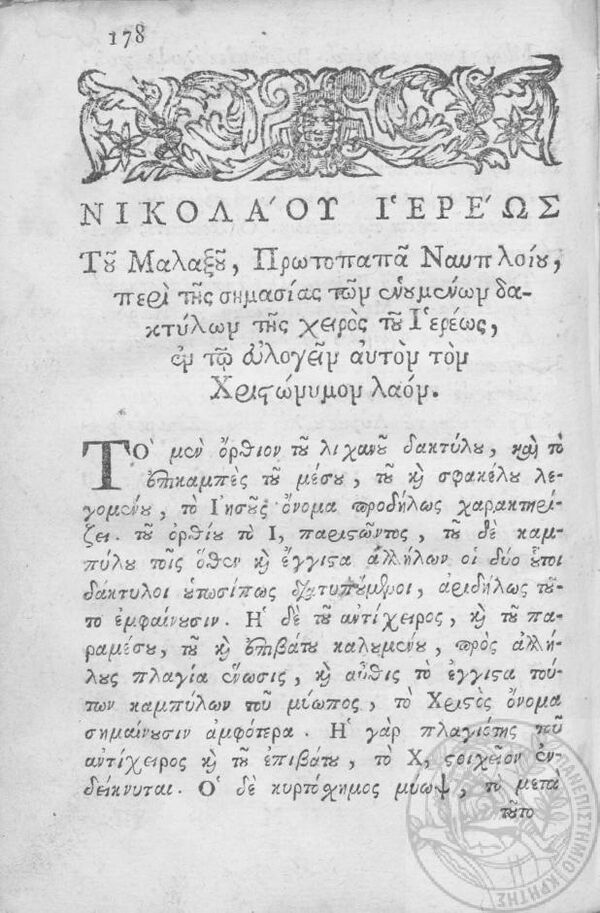 178
ΝΙΚΟΛΑ´ΟΥ Ι῾ΕΡΕ´ΩΣ
Τοῦ Μαλαξοῦ, Πρωτοπαπᾶ Ναυπλοίου,
περὶ τῆς σημασίας τῶν ἑνουμένων δα-
κτύλων τῆς χειρὸς τοῦ Ἱερέως,
ἐν τῷ εὐλογεῖν αὐτὸν τὸν
Χριστώνυμον λαόν.
ΤΟ῾ μὲν ὄρθιον τοῦ λιχανοῦ δακτύλου, καὶ τὸ
ἐπικαμπὲς τοῦ μέσου, τοῦ καὶ σφακέλου λε-
γομένου, τὸ Ἰησοῦς ὄνομα προδήλως χαρακτηρί-
ζει. τοῦ ὀρθίου τὸ Ι, παριστῶντος, τοῦ δὲ καμ-
πύλου τοῖς ὅθεν καὶ ἔγγιστα ἀλλήλων οἱ δύο οὗτοι
δάκτυλοι διατυπούμενοι, ἀριδήλως τοῦ-
το ἐμφαίνουσιν. Ἡ δὲ τοῦ ἀντίχειρος, καὶ τοῦ πα-
ραμέσου, τοῦ καὶ ἐπιβάτου καλουμένου, πρὸς ἀλλή-
λους πλαγία ἕνωσις, καὶ αὖθις τὸ ἔγγιστα τού-
των καμπύλων τοῦ μύωπος, τὸ Χριστὸς ὄνομα
σημαίνουσιν ἀμφότερα. Ἡ γὰρ πλαγιότης τοῦ
ἀντίχειρος καὶ τοῦ ἐπιβάτου, τὸ Χ, στοιχεῖον ἐν-
δείκνυται. Ὁ δὲ κυρτόχημος μύωψ, τὸ μετὰ
τοῦτο
ΠΑΝΕΠΙΣΤΗΜΙΟ ΚΡΗΤΗΣ